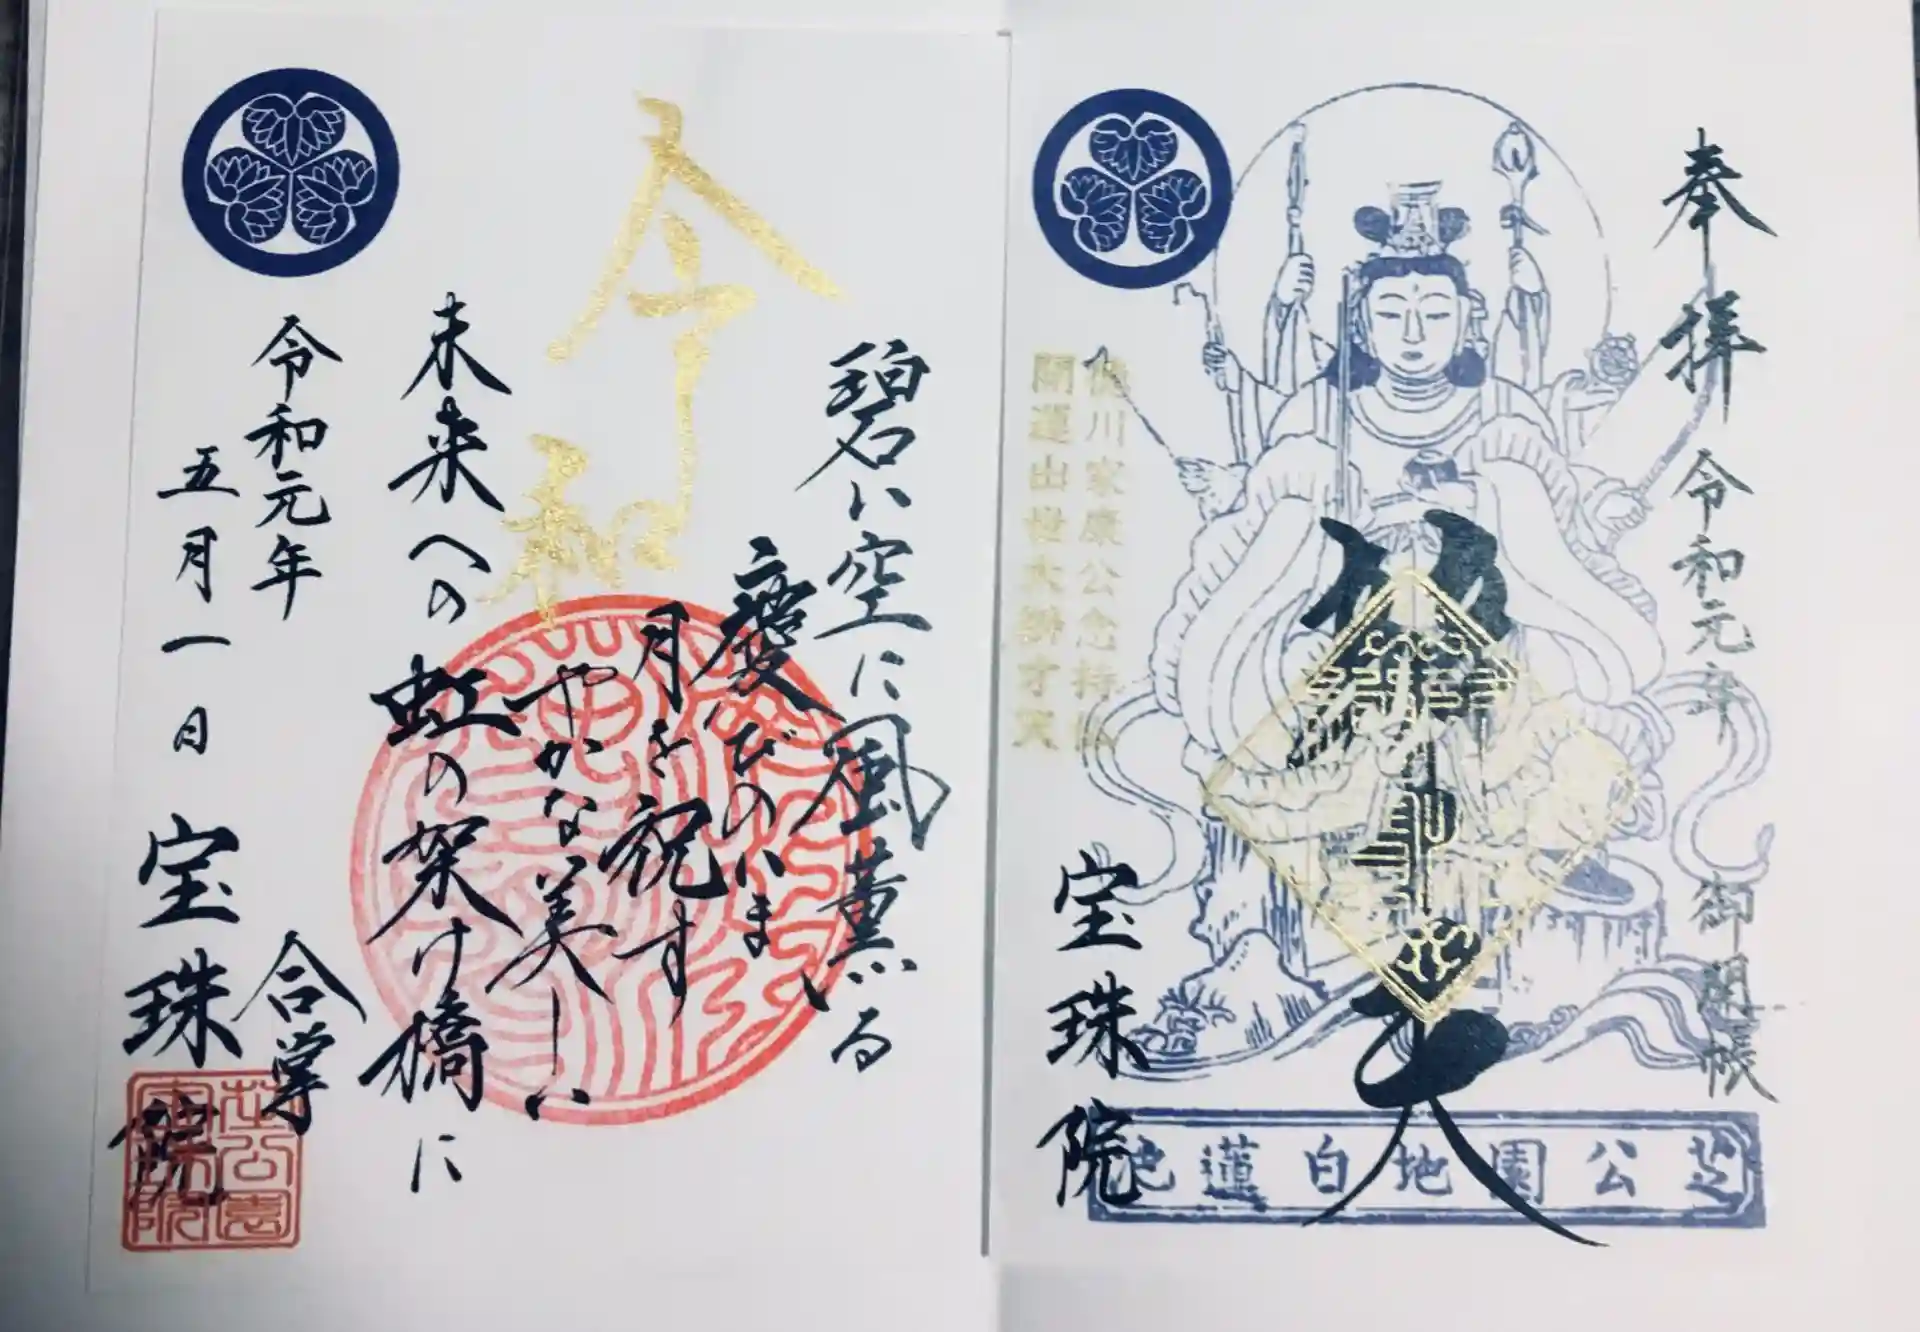 奉拝
令和元年
御開帳
辨才天
宝珠院
徳川家康公念持佛
開運出世大辨才天
芝公園地白蓮池
令和
碧い空に風薫る
慶びのいま
月を祝す
やかな美しい
未来への
虹の架け橋に
令和元年
五月一日
合掌
宝珠院
芝公園
宝珠院